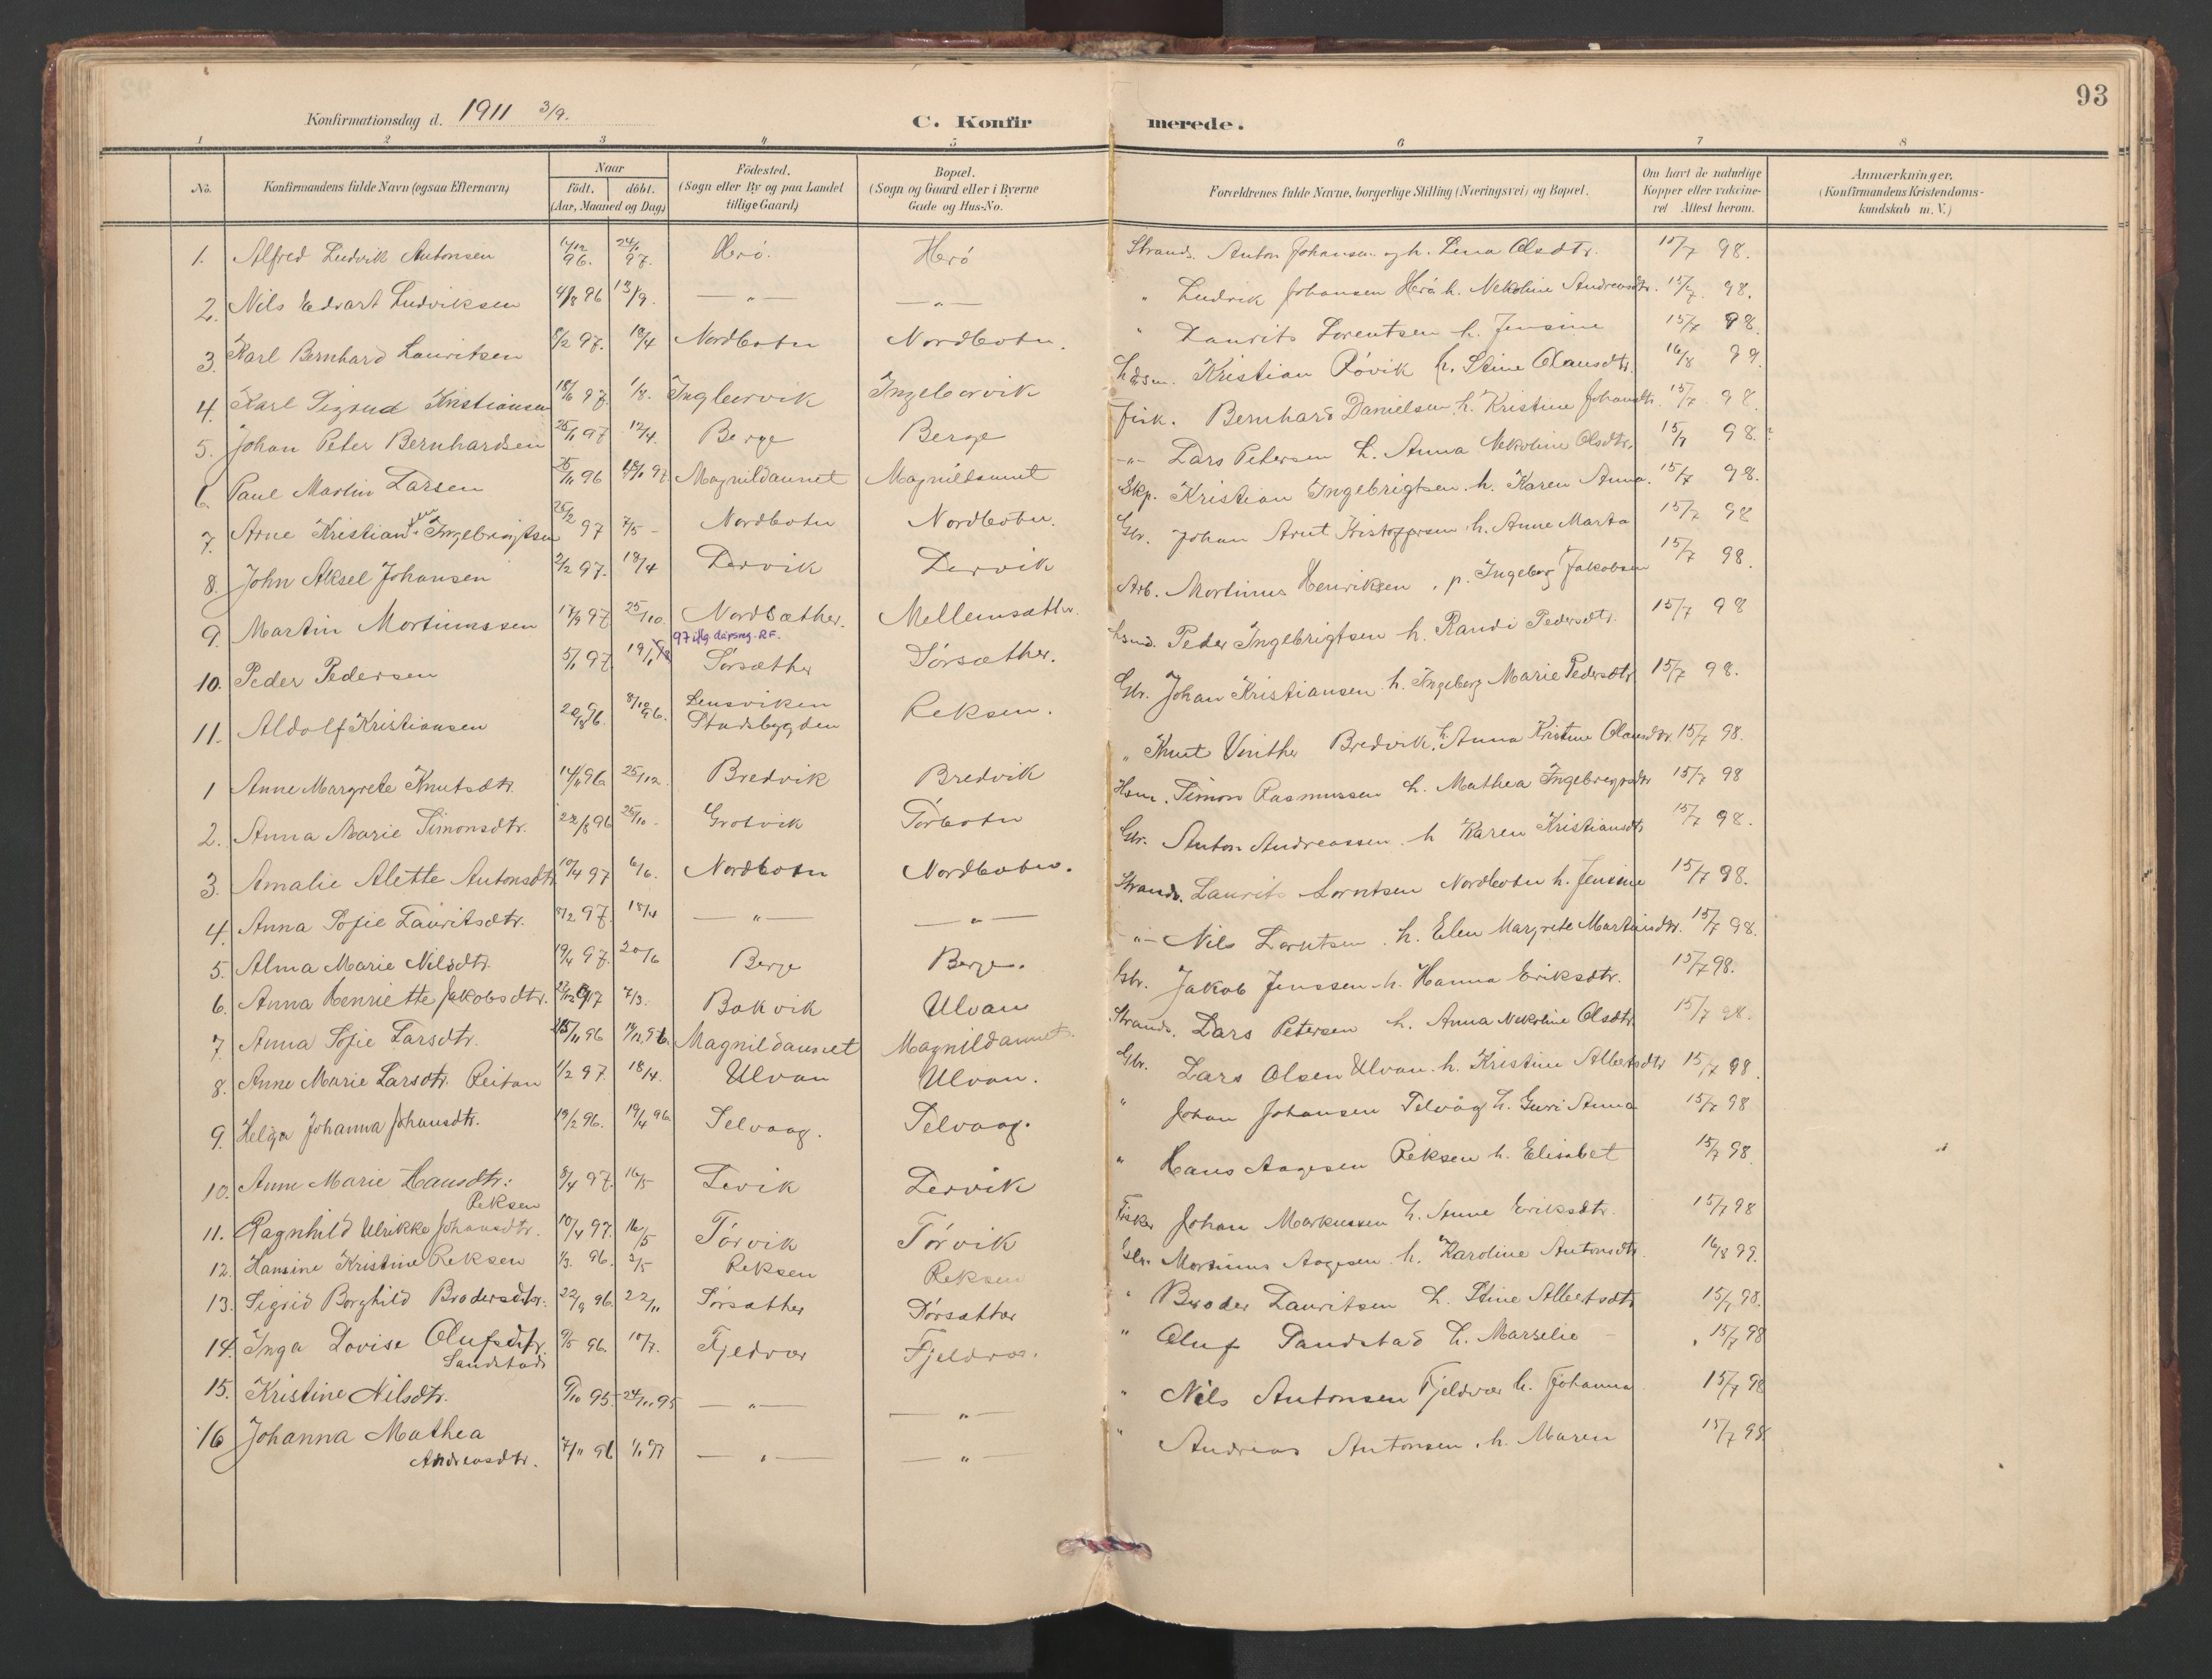 93
Konfirmationsdag d. 1911 3/9.
C. Konfirmerede.
1 2 3 4 5 6 7 8
No. Konfirmandens fulde Navn (ogsaa Efternavn) Naar födt. döbt. (Aar, Maaned og Dag) Födested. (Sogn eller By og paa Landet tillige Gaard) Bopæl. (Sogn og Gaard eller i Byerne Gade og Hus-No. Forældrenes fulde Navne, borgerlige Stilling (Næringsvei) og Bopæl. Om havt de naturlige Kopper eller vakcineret Attest herom. Anmærkninger. (Konfirmandens Kristendomskundskab m. V.)
1. Alfred Ludvik Antonsen 96. 24/1 97. Herö. Herö Strands. Anton Johansen og h. Lina Olsdtr. 15/7 98.
2. Nils Edvart Ludviksen 96 13/9. — " — — " — " Ludvik Johansen Herö h. Nekoline Andreasdtr. 15/7 98.
3. Karl Bernhard Lauritsen 8/2 97. 18/4 Nordbotn Nordbotn. " Laurits Lorentsen h. Jensine 15/7 98.
4. Karl Sigrud Kristiansen 18/6 97. 1/8. Ingborvik Ingeborvik Kristian Rövik h. Stine Olausdtr. 16/8 99.
5. Johan Peter Bernhardsen 25/1 97 12/4. Berge Berge Fisk. Bernhard Danielsen h. Kristine Johansdtr. 15/7 98
6. Paul Martin Larsen 25/11 96 97. Magnildaunet Magnildaunet -"- Lars Petersen h. Anna Nekoline Olsdtr. 15/7 98.?
7. Arne Kristian Ingebrigtsen 25/2 97 7/5 - Nordbotn Nordbotn. Skp. Kristian Ingebrigtsen h. Karen Anna. 15/7 98.
8. John Aksel Johansen 2/2 97. 18/4 Lervik Lervik Gbr. Johan Arnt Kristoffersen h. Anne Marta 15/7 98
9. Martin Mortinussen 17/9 97 25/10. Nordsæther. Mellemsæther. Arb. Mortinus Henriksen. p. Ingeborg Jakobsen 15/7 98.
97 iflg dåpsreg. RF.
10. Peder Pedersen 5/1 97 19/1 Sörsæther Sörsæther. Peder Ingebrigtsen h. Randi Pedersdtr. 15/7 98
11. Aldolf Kristiansen 96. 8/12 96. Lensviken Stadsbygden Reksen. Gbr. Johan Kristiansen h. Ingeborg Marie Pedersdtr 15/7 98.
1 Anne Margrete Knutsdtr. 14/11 96 25/12. Bredvik Bredvik " Knut Vinther Bredvik, h. Anna Kristine Olausdtr. 15/7 98.
2. Anna Marie Simonsdtr. 22/8 96 25/10. Grotvik Sörbotn Hsm. Simon Rasmussen h. Mathea Ingebrigtsdtr 15/7 98
3. Amalie Alette Antonsdtr 10/4 97 6/6. Nordbotn Nordbotn. Gbr. Anton Andreassen h Karen Kristiansdtr 15/7 98.
4. Anna Sofie Lauritsdtr. 8/2 97. 18/4 — " — — " — Strands. Laurits Lorntsen Nordbotn h. Jensine 15/7 98.
5. Alma Marie Nilsdtr. 19/4 97. 20/6 Berge Berge. -"- Nils Lorntsen h. Elen Margrete Martinsdtr. 15/7 98.
6. Anna Henriette Jakobsdtr. 7/3. Bakvik Ulvan Gbr. Jakob Jenssen h. Hanna Eriksdtr. 15/7 98.
7. Anna Sofie Larsdtr. 25/11 96 96. Magnildaunet Magnildaunet Strands. Lars Petersen h. Anna Nekoline Olsdtr 15/7 98.
8. Anne Marie Larsdtr. Reitan 1/2 97. 18/4. Ulvan Ulvan. Gbr. Lars Olsen Ulvan h. Kristine Albertsdtr 15/7 98.
9. Helga Johanna Johansdtr. 19/2 96. 19/4 96. Selvaag. Selvaag. " Johan Johansen Selvåg h. Guri Anna 15/7 98
10. Anne Marie Hansdtr: Reksen 8/4 97. 16/5 Levik Lervik " Hans Aagesen Reksen h. Elisabet 15/7 98.
11. Ragnhild Ulrikke Johansdtr. 10/4 97. 16/5 Sörvik Sörvik Fisker Johan Markussen h. Anne Eriksdtr. 15/7 98
12. Hansine Kristine Reksen 1/3. 96. 3/5 Reksen Reksen Gbr. Mortinus Aagesen h. Karoline Antonsdtr. 16/8 99.
13. Sigrid Borghild Brodersdtr. 22/9 96. 22/11 Sörsæther Sörsæther " Broder Lauritsen h. Stine Albertsdtr 15/7 98.
14. Inga Lovise Olufsdtr Sandstad 9/5 96. 10/7. Fjeldvær Fjeldvær. " Oluf Sandstad h. Marselie 15/7 98
15. Kristine Nilsdtr. 9/10 95. 24/11 95 — " — — " — " Nils Antonsen Fjeldvær h. Johanna 15/7 98
16 Johanna Mathea Andreasdtr. 7/11 96 1/1 97 — " — — " — " Andreas Antonsen. h. Maren 15/7 98